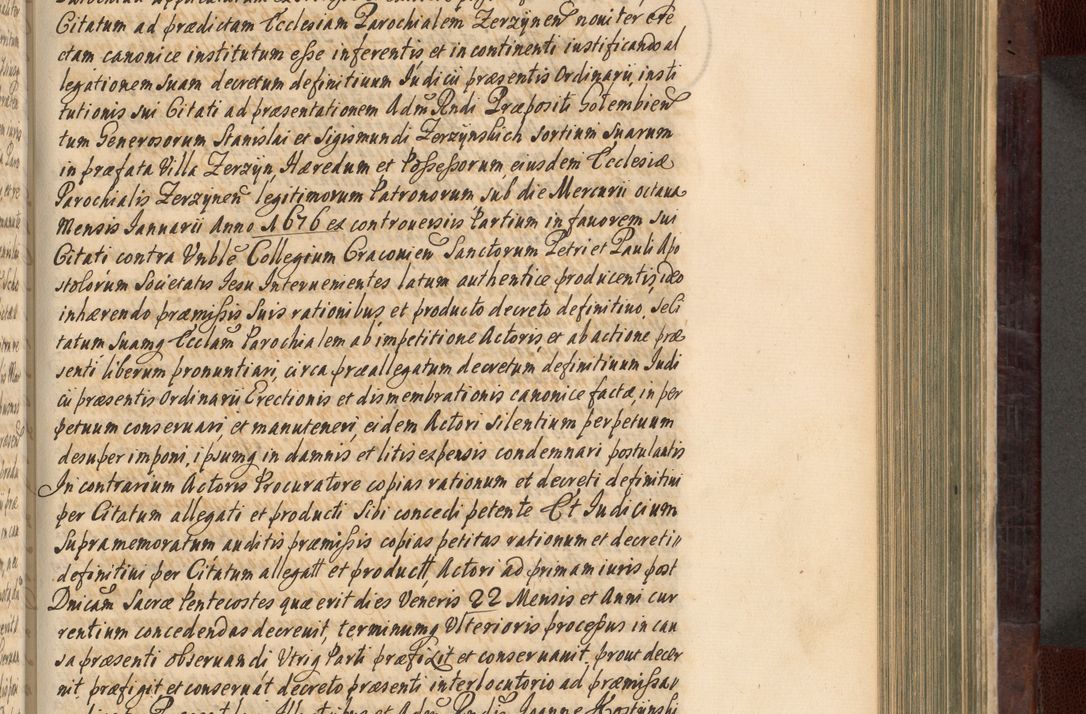 Citatum ad prædictam Ecclesiam Parochialem Zerzÿnen noviter ere
ctam canonice institutum eſse inferentis et in continenti iustificando al
legationem suam decretum definitiuum Iudicii præsentis Ordinarii, insti
tutionis sui Citati ad præsentationem Adm Rndi Præpositi Golembien
tum Generosorum Stanislai et Sigismundi Zerzÿnskich sortium suarum
in præfata Villa Zerzÿn, Hæredum et Poſseſsorum, eiusdem Ecclesiæ
Parochialis Zerzÿnen legitimorum Patronorum, sub die Mercurii octaua
Mensis Ianuarii Anno 1676 ex controversiis Partium in fauorem sui
Citati contra Vnble Collegium Cracouien Sanctorum Petri et Pauli Apo
stolorum Societatis Iesu Interuenientes latum authentice producentis, ideo
inhærendo præmiſsis suis rationibus et producto decreto definitiuo, se Ci
tatum suamq Ecclam Parochialem ab impetitione Actoris, et ab actione præ
senti liberum pronuntiari, circa præallegatum decretum definitiuum Iudi
cii præsentis Ordinarii Erectionis et dismembrationis canonice factæ, in per
petuum conseruari, et manuteneri, eidem Actori silentium perpetuum
desuper imponi, ipsumq in damnis et litis expensis condemnari postulantis
In contrarium Actoris Procuratore copias rationum et decreti definitiui
per Citatum allegati et producti sibi concedi petente Et Iudicium
supramemoratum auditis præmiſsis copias petitas rationum et decreti
definitiui per Citatum allegatt et productt Actori ad primam iuris post
Dnicam Sacræ Pentecostes quæ erit dies Veneris 22 Mensis et Anni cur
rentium concedendas decreuit, terminumq Vlterioris proceſsus in cau
sa præsenti obseruandi Vtriq Parti præfixit et conseruauit, prout decer
nit, præfigit et conseruat decreto præsenti interlocutorio ad præmiſsa